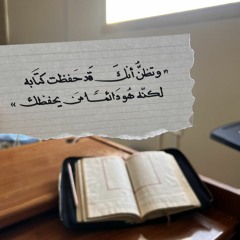 "وتظنُّ أنكَ قد حفظت كتابه
لكنّه هُو دَائمًا مَن يحفظك"